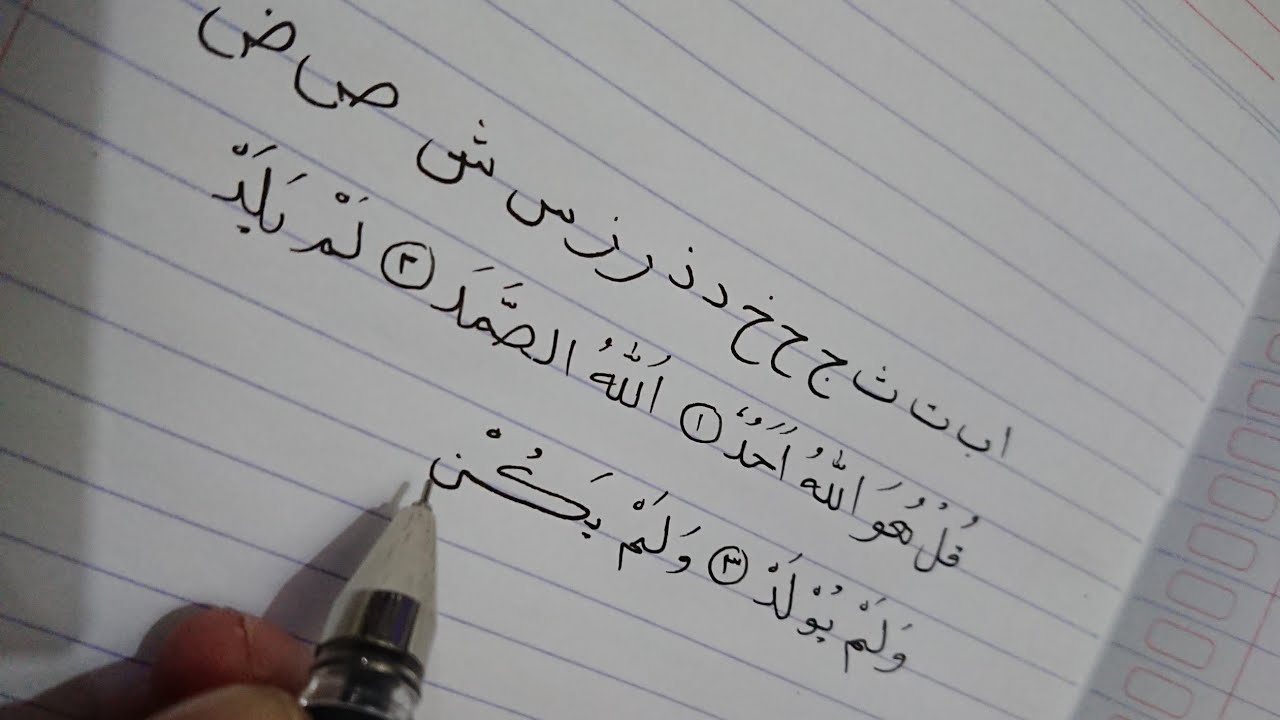 ا ب ت ث ج ح خ د ذ ر ز س ش ص ض
قُلْ هُوَ اللّٰهُ اَحَدٌ ۝١ اَللّٰهُ الصَّمَدَ ۝٢ لَمْ يَلِدْ
وَلَمْ يُوْلَدْ ۝٣ وَلَمْ يَكُنْ